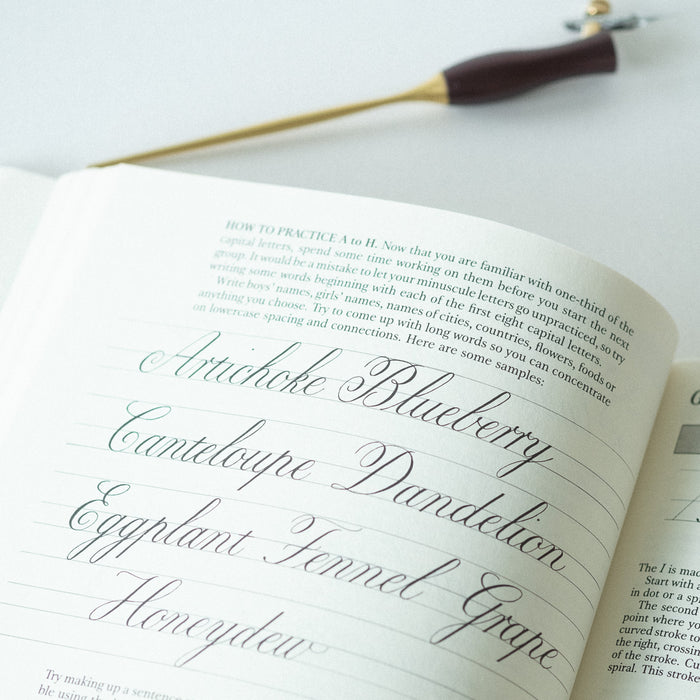 HOW TO PRACTICE A to H. Now that you are familiar with one-third of the
capital letters, spend some time working on them before you start the next
group. It would be a mistake to let your minuscule letters go unpracticed, so try
writing some words beginning with each of the first eight capital letters.
Write boys' names, girls' names, names of cities, countries, flowers, foods or
anything you choose. Try to come up with long words so you can concentrate
on lowercase spacing and connections. Here are some samples:
Artichoke Blueberry
Canteloupe Dandelion
Eggplant Fennel Grape
Honeydew
Try making up a sentence
ble using the
The I is mad
Start with a
in dot or a sp
The second
point where yo
curved stroke to
the right, crossin
of the stroke. Cu
spiral. This stroke